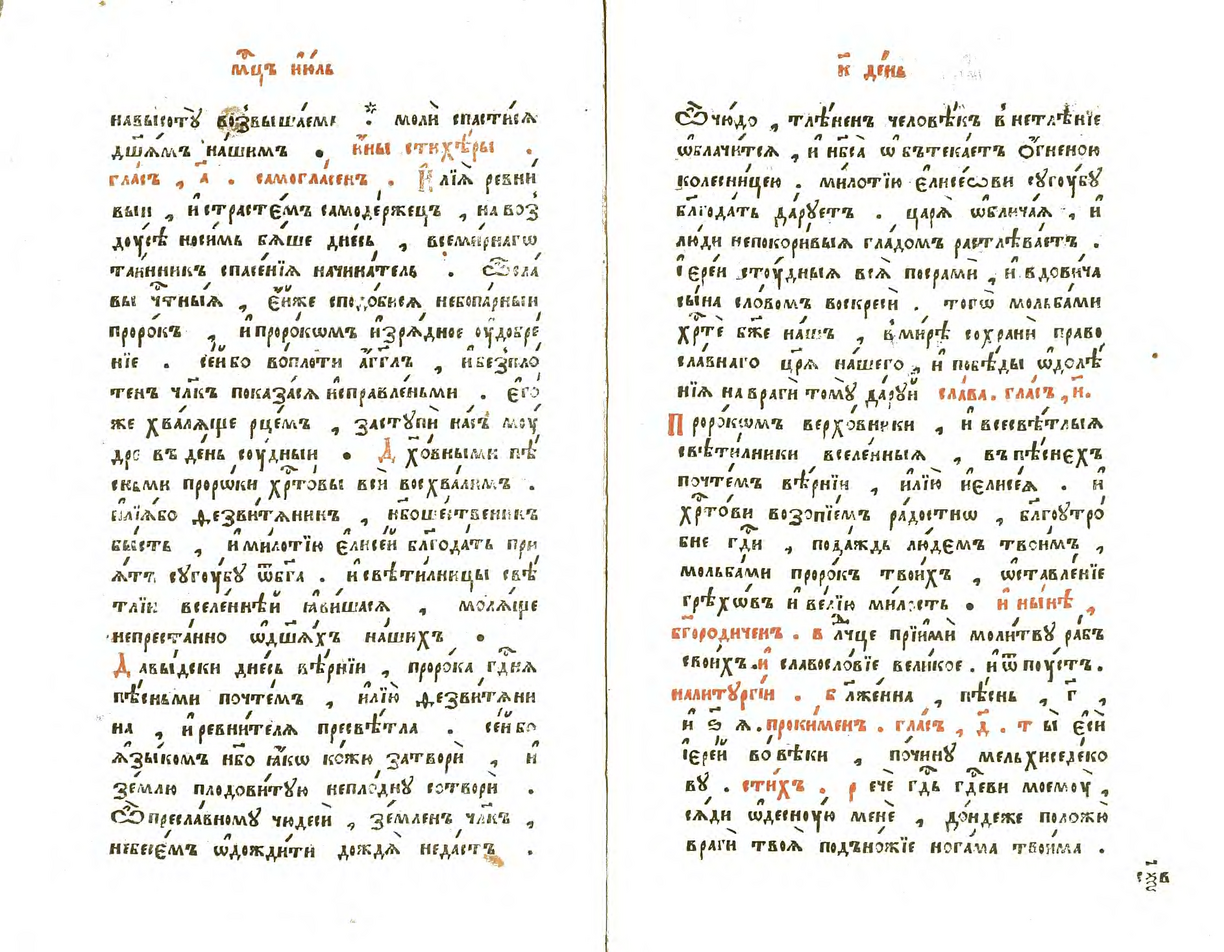 мⷭ҇цъ и҆ю́ль
навысотꙋ̀ возвыша́еми . молѝ спасти́сѧ
дш҃а́мъ на́шимъ . и҆́ны стихѣ́ры .
гла́съ , а҃ . самогла́сенъ . И҆лїѧ̀ ревни́
выи , и҆страсте́мъ самоде́ржецъ , навоз̾
дꙋ́сѣ носи́мь бѧ́ше дне́сь , всеми́рнагѡ
та́инникъ спасе́нїѧ нача́тель . Ѽсла́
вы чⷭ҇тныѧ , є҆ѧ́же сподо́бисѧ небопа́рныи
проро́къ , и҆проро́кѡмъ и҆зрѧ́дное ᲂу҆добре́
нїе . се́и бо воплоти а҆́гг҃лъ , и҆безпло́
тенъ чл҃къ показа́сѧ и҆справле́ньми . є҆го́
же хва́лѧще рце́мъ , застꙋпѝ на́съ мꙋ́
дре въ де́нь сꙋ́дныи . Дх҃о́вными пѣ́
сньми проро́ки хрⷭ҇то́вы всѝ восхва́лимъ .
и҆лїѧ́бо ѳезвитѧ́никъ , и҆боше́ственикъ
бы́сть , и҆ми́лотїю є҆лисе́и блгⷣа́ть прїѧ́тъ сꙋгꙋ́бꙋ ѿбг҃а . и҆свѣти́лницы свѣ́
тлїи вселе́ннѣй ꙗ҆ви́шасѧ , молѧ́ще
непреста́нно ѡ҆дш҃а́хъ на́шихъ .
Дав́ыдски дне́сь вѣ́рнїи , проро́ка гдⷭ҇нѧ
пѣ́сньми почте́мъ , и҆лїю̀ ѳезвитѧ́ни
на , и҆ревни́телѧ пресвѣ́тла . се́и бо
ѧ҆зы́комъ нб҃о ꙗ҆́кѡ ко́жю затворѝ , и҆
зе́млю плодови́тꙋю непло́днꙋ сотворѝ .
Ѽпресла́вномꙋ чюдесѝ , зе́мленъ чл҃къ ,
небесе́мъ ѡ҆дожди́ти дождѧ̀ неда́стъ .
к҃ де́нь
Ѽчю́до , тлѣ́ненъ человѣ́къ в нетлѣ́нїе
ѡ҆блачи́тсѧ , и҆ нб҃са̀ ѡ҆бътека́етъ о҆́гненою
колесни́цею . ми́лотїю є҆лисе́ѡви сꙋгꙋ́бꙋ
благода́ть да́рꙋетъ . царѧ̀ ѡ҆блича́ѧ , и҆
лю́ди непокори́выѧ гла́домъ растлѣва́етъ .
і҆ере́и стꙋ́дныѧ всѧ̀ посрамѝ , и҆ вдови́ча
сы́на сло́вомъ воскресѝ . тогѡ̀ мольба́ми
хрⷭ҇тѐ бж҃е на́шъ , в ми́рѣ сохранѝ право
сла́внаго цр҃ѧ̀ на́шего , и҆ побѣ́ды ѡ҆долѣ́
нїѧ на врагѝ томꙋ̀ да́рꙋй сла́ва . гла́съ , и҃ .
Проро́кѡмъ верхо́вники , и҆ всесвѣ́тлыѧ
свѣти́лники вселе́нныѧ , въ пѣ́снехъ
почте́мъ вѣ́рнїи , и҆лїю̀ и҆є҆лисе́ѧ . и҆
хрⷭ҇то́ви возопїе́мъ ра́достнѡ , бл҃гоꙋтро́
бне гдⷭ҇и , пода́ждь лю́демъ твои́мъ ,
мольба́ми проро́къ твои́хъ , ѡ҆ставле́нїе
грѣхѡ́въ и҆ ве́лїю ми́лость . и҆ ны́нѣ ,
бг҃оро́диченъ . влⷣчце прїимѝ моли́твꙋ ра́бъ
свои́хъ . и҆ славосло́вїе вели́кое . и҆ ѿпꙋ́стъ .
на литꙋргі́и . бл҃же́нна , пѣ́снь , г҃ ,
и҆ ѕ҃ ѧ . проки́менъ . гла́съ , д҃ . ты̀ є҆сѝ
і҆ере́й во вѣ́ки , по чи́нꙋ мельхиседе́ко
вꙋ . сти́хъ . речѐ гдⷭ҇ь гдⷭ҇еви моемꙋ̀ ,
сѧ́ди ѡ҆деснꙋ́ю менѐ , до́ндеже положю̀
врагѝ твоѧ̀ подъно́жїе нога́ма твои́ма .